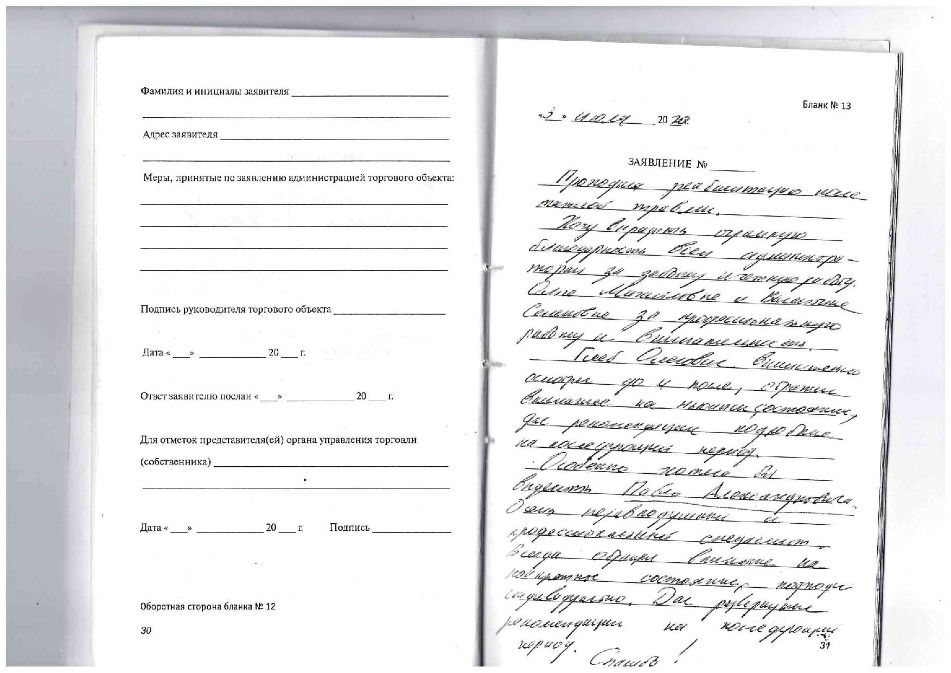 Фамилия и инициалы заявителя
Адрес заявителя
Меры, принятые по заявлению администрацией торгового объекта:
Подпись руководителя торгового объекта
Дата « » 20 г.
Ответ заявителю послан « » 20 г.
Для отметок представителя(ей) органа управления торговли
(собственника)
Дата « » 20 г. Подпись
Оборотная сторона бланка № 12
30
Бланк № 13
«3» июля 20
ЗАЯВЛЕНИЕ №
Проходил реабилитацию после
тяжелой травмы.
Хочу выразить огромную
благодарность всей администра-
ции за заботу и четкую работу.
Ольге Михайловне и Валентине
Семеновне за профессиональную
работу и внимательность.
Глеб Олегович внимательно
осмотрел до и после, обратил
внимание на состояние,
дал рекомендации подробные
на последующий период.
Особенно хотел бы
выделить Павла Александровича.
Очень и
профессиональный специалист.
Всегда обращал внимание на
конкретное состояние, подходил
индивидуально. Дал развернутые
рекомендации на последующий
период.
Спасибо!
31